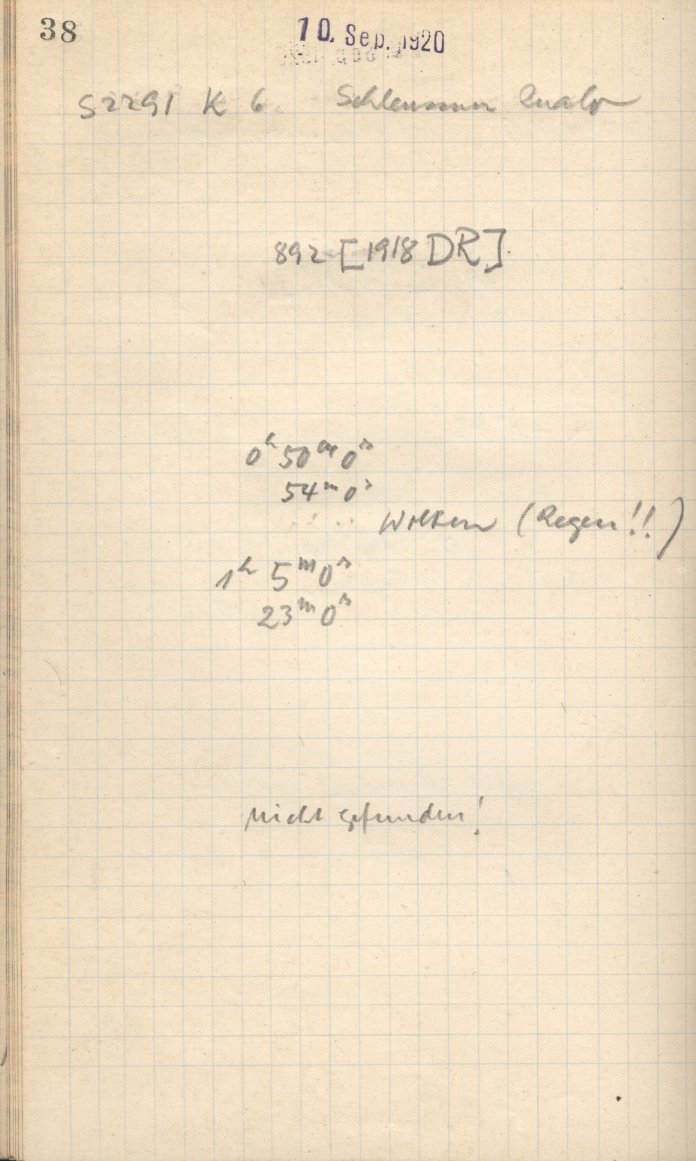 38
10. Sep. 1920
S2291 K 6 Schleussner
892 [1918 DR]
0ʰ 50ᵐ 0ˢ
54ᵐ 0ˢ
Wolken (Regen!!)
1ʰ 5ᵐ 0ˢ
23ᵐ 0ˢ
nicht gefunden!